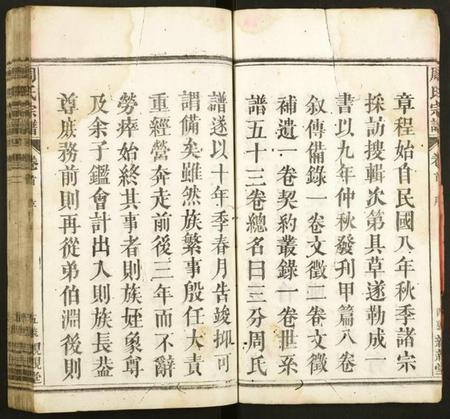 章程始自民國八年秋季諸宗
採訪搜輯次第具草遂勒成一
書以九年仲秋發刋甲篇八卷
敘傳備錄一卷文徵二卷文徵
補遺一卷契約叢錄一卷世系
譜五十三卷總名曰三分周氏
譜遂以十年季春月告竣抑可
謂備矣雖然族繁事殷任大責
重經營奔走前後三年而不辭
勞瘁始終其事者則族姪象尊
及余子鑑會計出入則族長益
尊庶務前則再從弟伯淵後則
周氏宗譜 卷首 序
周氏宗譜 卷首 序